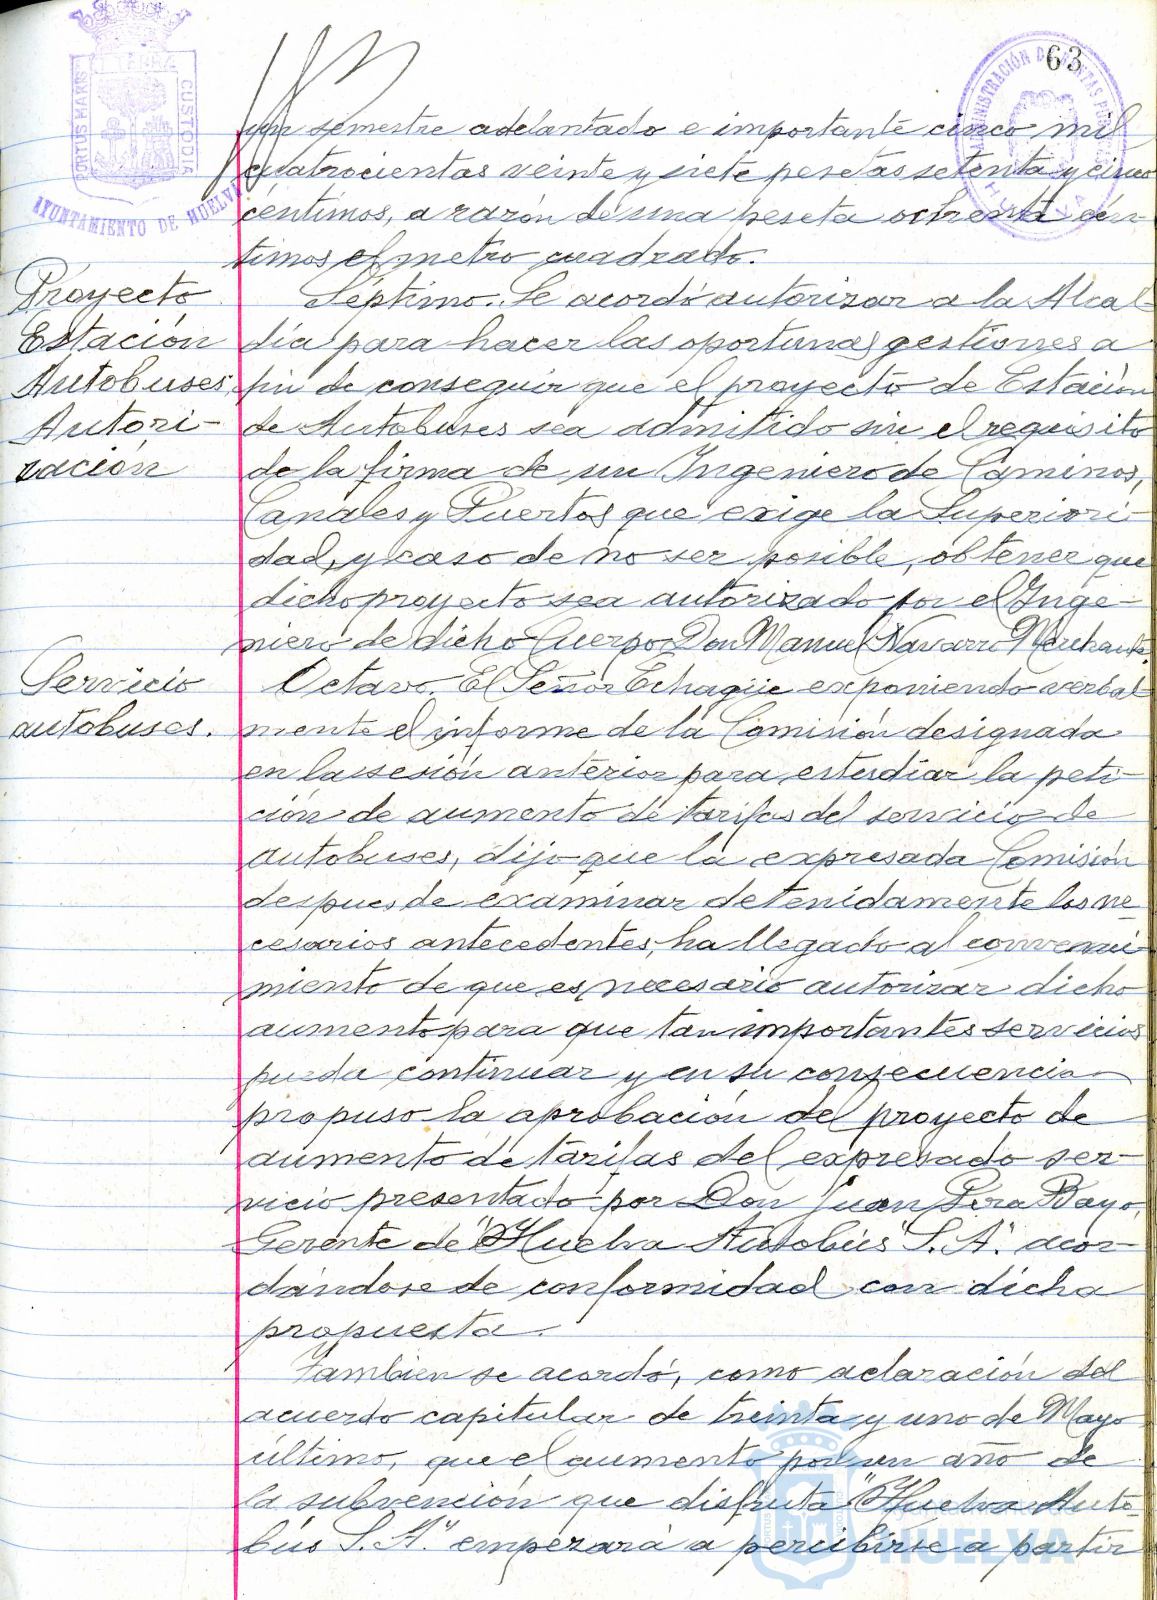 63
PORTUS MARIS ET TERRÆ CUSTODIA
AYUNTAMIENTO DE HUELVA
ADMINISTRACIÓN DE RENTAS PÚBLICAS
HUELVA
un semestre adelantado e importante cinco mil
cuatrocientas veinte y siete pesetas setenta y cinco
céntimos, a razón de una peseta ochenta cén-
timos el metro cuadrado.
Proyecto
Estación
Autobuses.
Autori-
zación
Séptimo. Se acordó autorizar a la Alcal-
día para hacer las oportunas gestiones a
fin de conseguir que el proyecto de Estación
de Autobuses sea admitido sin el requisito
de la firma de un Ingeniero de Caminos,
Canales y Puertos que exige la Superiori-
dad, y caso de no ser posible, obtener que
dicho proyecto sea autorizado por el Inge-
niero de dicho Cuerpo Don Manuel Navarro Merchante.
Servicio
autobuses.
Octavo. El Señor Echagüe exponiendo verbal-
mente el informe de la Comisión designada
en la sesión anterior para estudiar la peti-
ción de aumento de tarifas del servicio de
autobuses, dijo que la expresada Comisión
despues de examinar detenidamente los ne-
cesarios antecedentes, ha llegado al convenci-
miento de que es necesario autorizar dicho
aumento para que tan importantes servicios
pueda continuar y en su consecuencia
propuso la aprobación del proyecto de
aumento de tarifas del expresado ser-
vicio presentado por Don Juan Pera Bayo,
Gerente de "Huelva Autobús S.A." acor-
dándose de conformidad con dicha
propuesta.
Tambien se acordó, como aclaración del
acuerdo capitular de treinta y uno de Mayo
último, que el aumento por un año de
la subvención que disfruta "Huelva Auto-
bús S.A." empezará a percibirse a partir
Ayuntamiento de
HUELVA